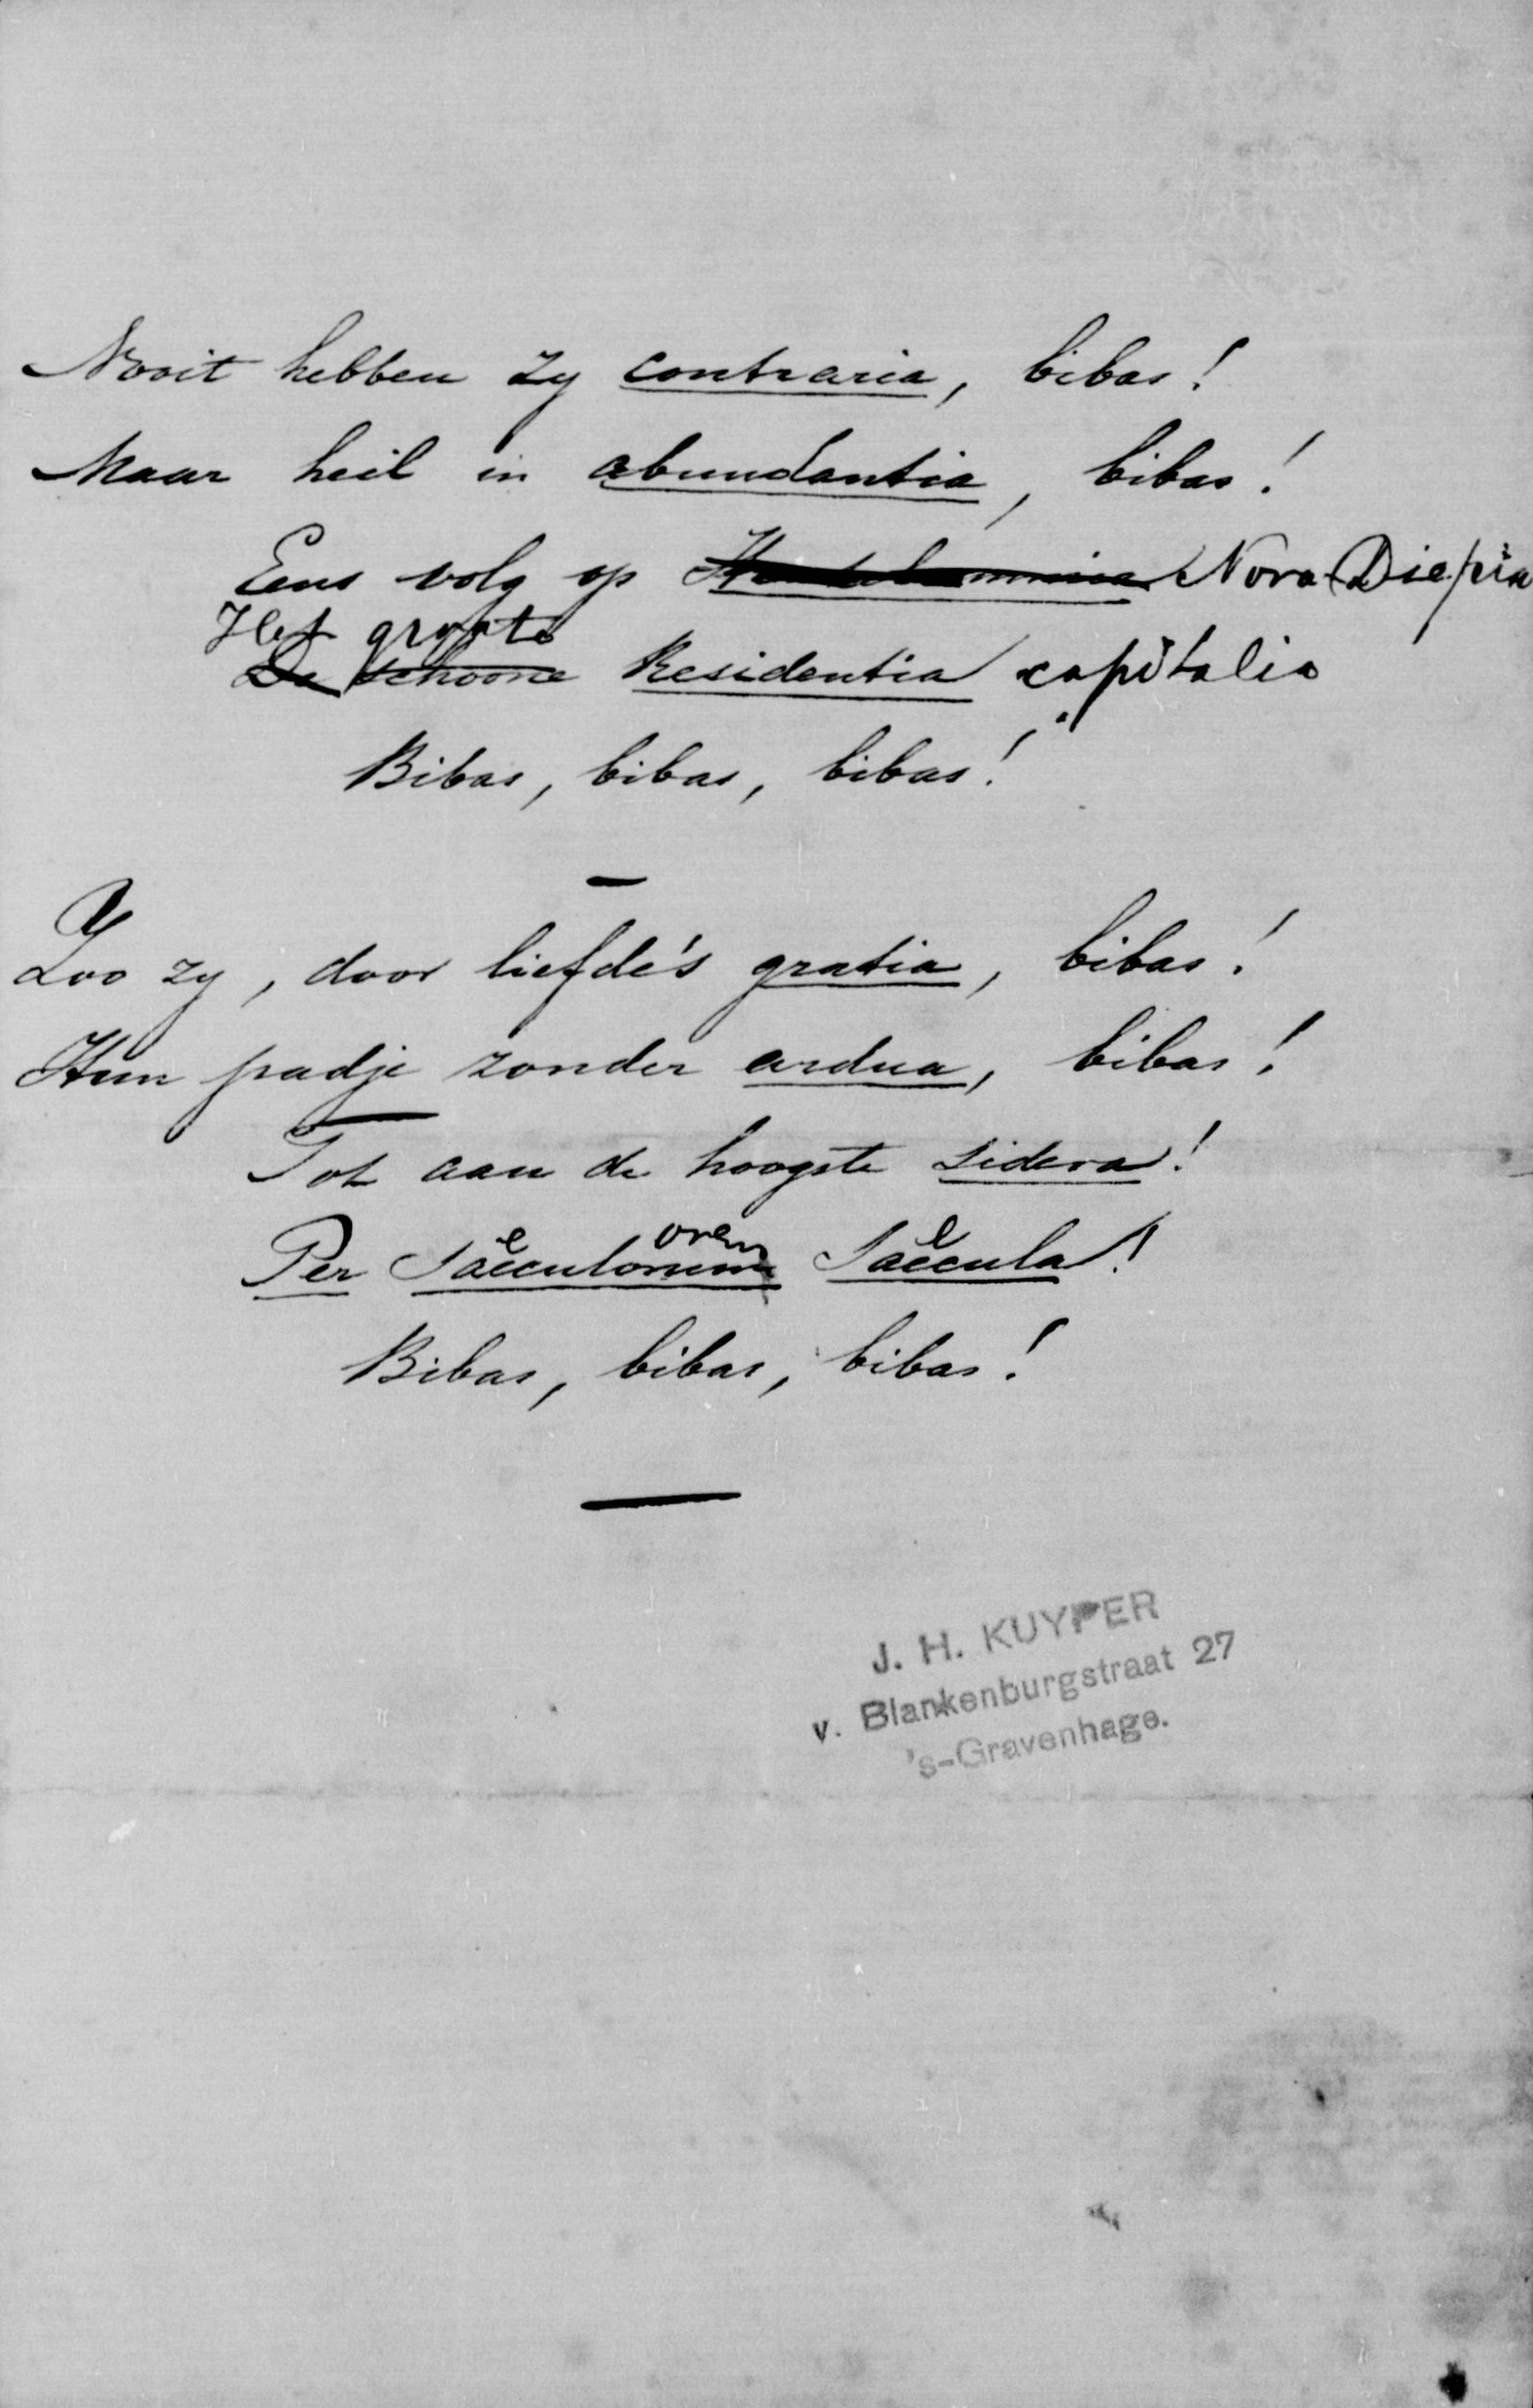 Nooit hebben zy contraria, bibas!
Maar heil in abundantia, bibas!
Eens volg op Nova-Diepia
Het groote
De schoone Residentia capitalia
Bibas, bibas, bibas!
Zoo zy, door liefde's gratia, bibas!
Hun padje zonder ardua, bibas!
Tot aan de hoogste sidera!
Per Saeculorum Saecula!
Bibas, bibas, bibas!
J. H. KUYPER
v. Blankenburgstraat 27
's-Gravenhage.